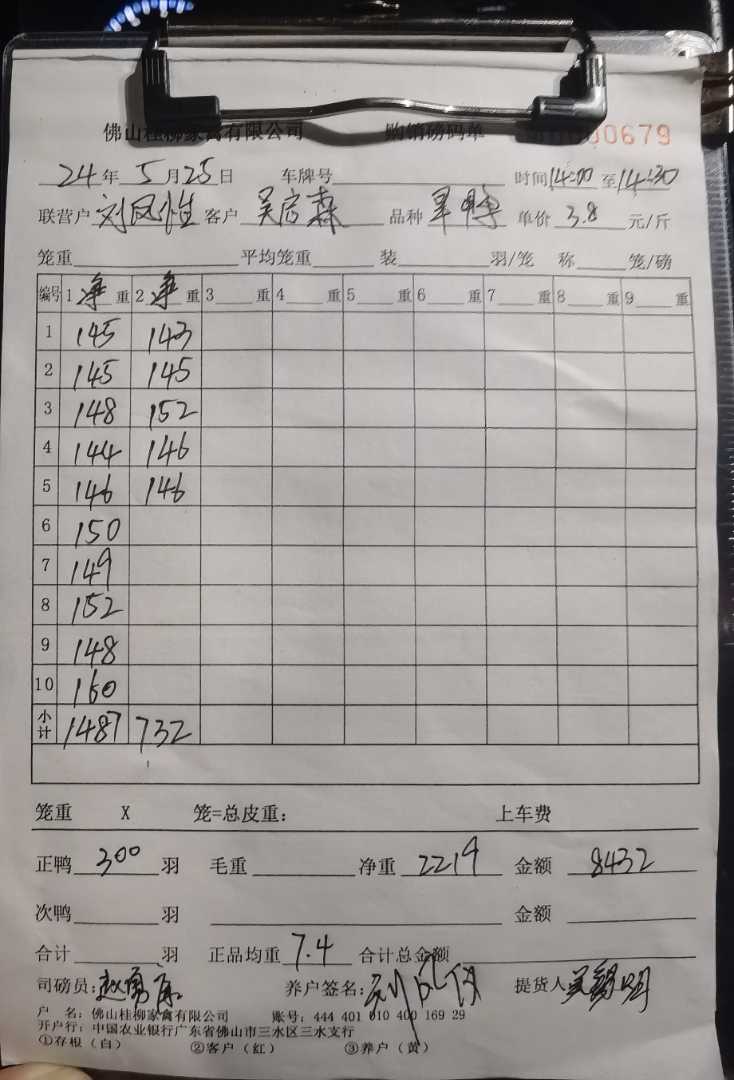 佛山桂柳家禽有限公司 购销磅码单 000679
24年5月25日 车牌号 时间14:00至14:30
联营户 刘凤恒 客户 吴启森 品种 单价 3.8 元/斤
笼重 平均笼重 装 羽/笼 称 笼/磅
编号 1 净 重 2 净 重 3 重 4 重 5 重 6 重 7 重 8 重 9 重
1 145 143
2 145 145
3 148 152
4 144 146
5 146 146
6 150
7 149
8 152
9 148
10 160
小计 1487 732
笼重 X 笼=总皮重: 上车费
正鸭 300 羽 毛重 净重 2219 金额 8432
次鸭 羽 金额
合计 羽 正品均重 7.4 合计总金额
司磅员: 养户签名: 提货人
户 名: 佛山桂柳家禽有限公司 账号: 444 401 010 400 169 29
开户行: 中国农业银行广东省佛山市三水区三水支行
①存根(白) ②客户(红) ③养户(黄)